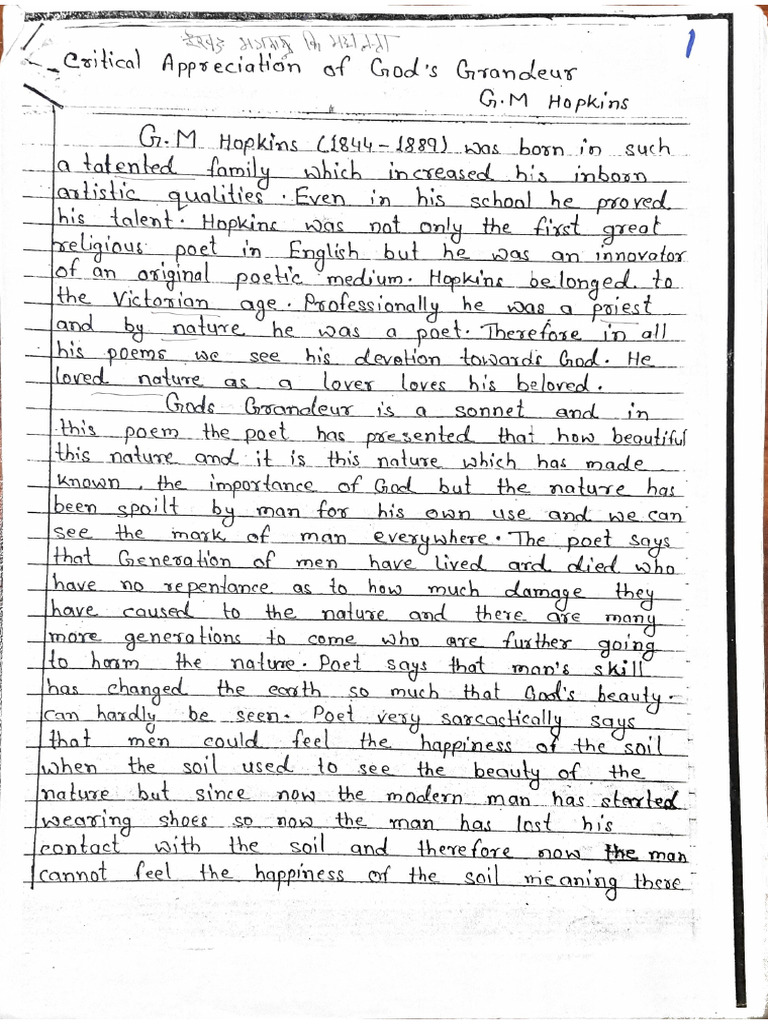 1
Critical Appreciation of God's Grandeur
G.M Hopkins
G.M Hopkins (1844-1889) was born in such
a tatented family which increased his inborn
artistic qualities. Even in his school he proved
his talent. Hopkins was not only the first great
religious poet in English but he was an innovator
of an original poetic medium. Hopkins belonged to
the Victorian age. Professionally he was a priest
and by nature he was a poet. Therefore in all
his poems we see his devotion towards God. He
loved nature as a lover loves his beloved.
Gods Grandeur is a sonnet and in
this poem the poet has presented that how beautiful
this nature and it is this nature which has made
known, the importance of God but the nature has
been spoilt by man for his own use and we can
see the mark of man everywhere. The poet says
that Generation of men have lived and died who
have no repentance as to how much damage they
have caused to the nature and there are many
more generations to come who are further going
to harm the nature. Poet says that man's skill
has changed the earth so much that God's beauty.
can hardly be seen. Poet very sarcastically says
that men could feel the happiness of the soil
when the soil used to see the beauty of the
nature but since now the modern man has started
wearing shoes so now the man has lost his
contact with the soil and therefore now the man
cannot feel the happiness of the soil meaning there